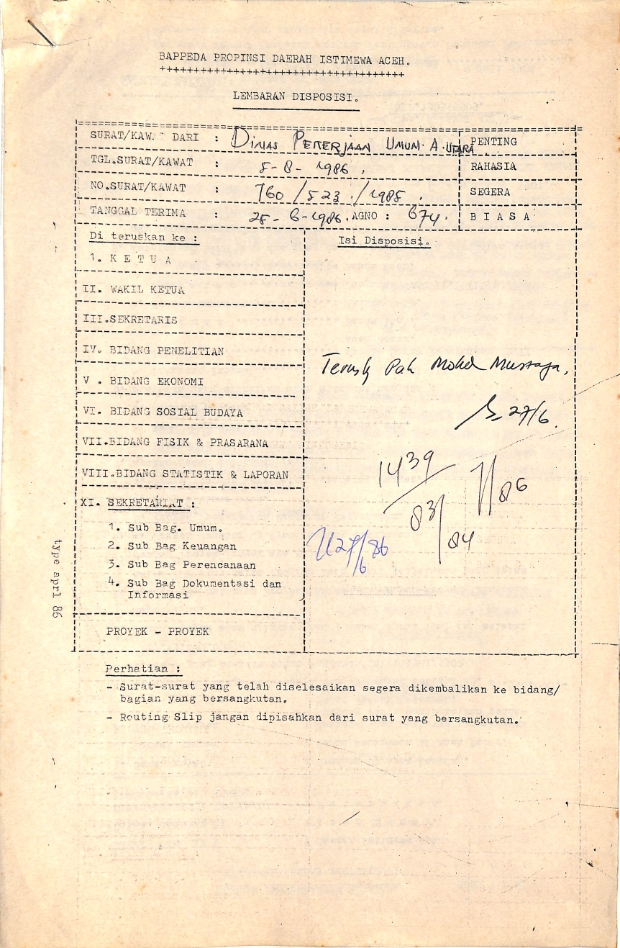 BAPPEDA PROPINSI DAERAH ISTIMEWA ACEH.
++++++++++++++++++++++++++++++++++++
LEMBARAN DISPOSISI.
SURAT/KAWAT DARI : DINAS PEKERJAAN UMUM A. UTARA PENTING
TGL.SURAT/KAWAT : 5-8-1986. RAHASIA
NO.SURAT/KAWAT : 760/523/1985. SEGERA
TANGGAL TERIMA : 25-6-1986. AGNO : 674. B I A S A
Di teruskan ke : Isi Disposisi.
1. K E T U A
II. WAKIL KETUA
III.SEKRETARIS
IV. BIDANG PENELITIAN
V . BIDANG EKONOMI
VI. BIDANG SOSIAL BUDAYA
VII.BIDANG FISIK & PRASARANA
VIII.BIDANG STATISTIK & LAPORAN
XI. SEKRETARIAT :
1. Sub Bag. Umum.
2. Sub Bag Keuangan
3. Sub Bag Perencanaan
4. Sub Bag Dokumentasi dan
Informasi
PROYEK - PROYEK
Pak Mohd
27/6.
1439
83/84
86
27/6 86
type aprl 86
Perhatian :
- Surat-surat yang telah diselesaikan segera dikembalikan ke bidang/
bagian yang bersangkutan.
- Routing Slip jangan dipisahkan dari surat yang bersangkutan.